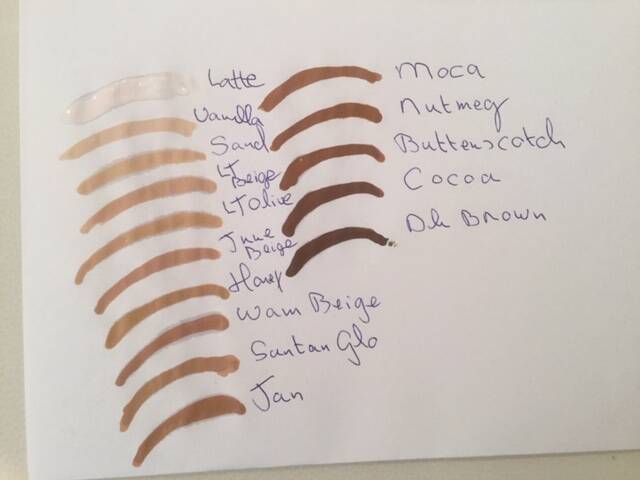 Latte
Vanilla
Sand
LT
Beige
LT Olive
June
Beige
Honey
Wam Beige
Suntan Glo
Tan
Moca
Nutmeg
Butterscotch
Cocoa
Dk Brown